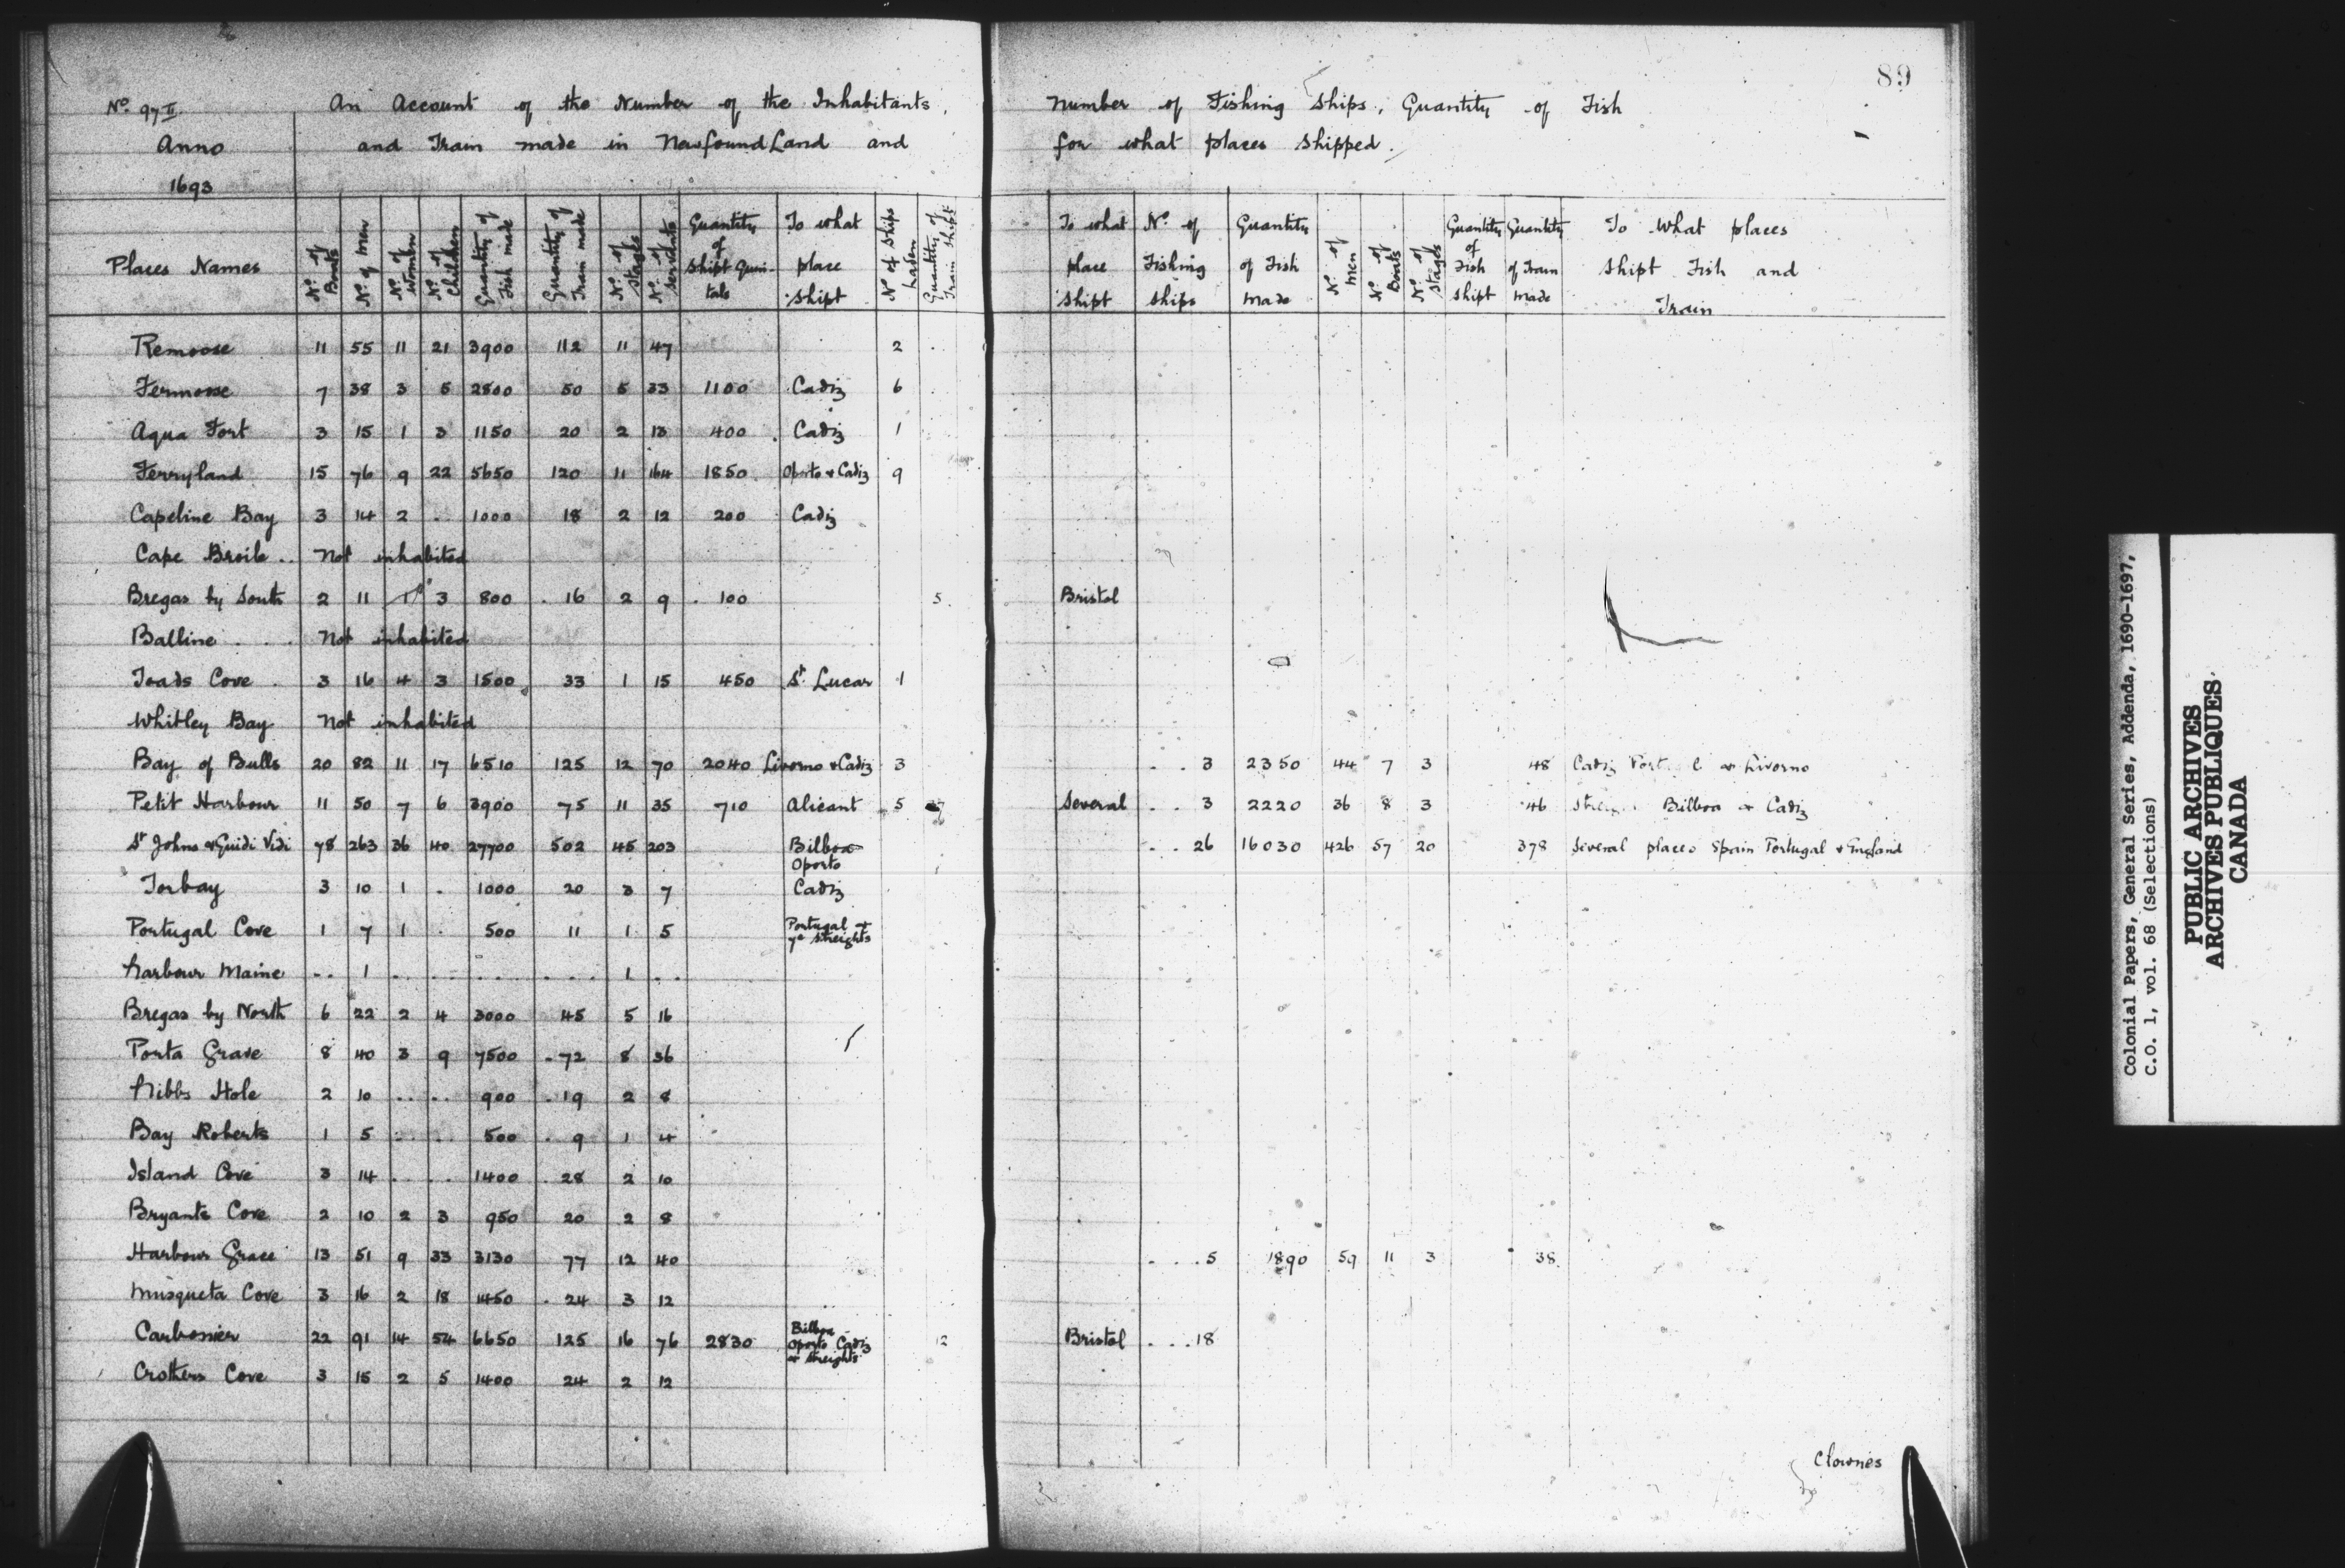 89
No. 97 II. An Account of the Number of the Inhabitants, Number of Fishing Ships, Quantity of Fish
Anno and Train made in Newfound Land and for what places Shipped.
1693
Places Names | No. of Boats | No. of Men | No. of Women | No. of Children | Quantity of Fish made | Quantity of Train made | No. of Stages | No. of Servants | Quantity of Shipt Quintals | To what place Shipt | No. of Ships Laden | Quantity of Train Shipt | To what place Shipt | No. of Fishing Ships | Quantity of Fish Made | No. of Men | No. of Boats | No. of Stages | Quantity of Fish Shipt | Quantity of Train Made | To What places Shipt Fish and Train
Remoose 11 55 11 21 3900 112 11 47 2
Fermoose 7 38 3 5 2800 50 5 33 1100 Cadiz 6
Aqua Fort 3 15 1 3 1150 20 2 13 400 Cadiz 1
Ferryland 15 76 9 22 5650 120 11 164 1850 Oporto & Cadiz 9
Capeline Bay 3 14 2 . 1000 18 2 12 200 Cadiz
Cape Broile .. Not inhabited
Bregas by South 2 11 1 3 800 16 2 9 100 5 Bristol
Balline . . . Not inhabited
Toads Cove . 3 16 4 3 1500 33 1 15 450 St. Lucar 1
Whitley Bay Not inhabited
Bay of Bulls 20 82 11 17 6510 125 12 70 2040 Livorno & Cadiz 3 . . 3 2350 44 7 3 48 Cadiz Port & Livorno
Petit Harbour 11 50 7 6 3900 75 11 35 710 Alicant 5 Several . . 3 2220 36 8 3 46 Bilboa & Cadiz
St Johns & Guidi Vidi 78 263 36 40 27700 502 45 203 Bilboa Oporto . . 26 16030 426 57 20 378 Several places Spain Portugal & England
Torbay 3 10 1 . 1000 20 3 7 Cadiz
Portugal Cove 1 7 1 . 500 11 1 5 Portugal & ye Streights
Harbour Maine .. 1 .. .. . . . . . . 1 . .
Bregas by North 6 22 2 4 3000 45 5 16
Porta Grave 8 40 3 9 7500 72 8 36
Hibbs Hole 2 10 .. .. 900 19 2 8
Bay Roberts 1 5 .. .. 500 9 1 4
Island Cove 3 14 . . . 1400 28 2 10
Bryants Cove 2 10 2 3 950 20 2 8
Harbour Grace 13 51 9 33 3130 77 12 40 . . . 5 1890 59 11 3 38
Musqueta Cove 3 16 2 18 1450 24 3 12
Carbonier 22 91 14 54 6650 125 16 76 2830 Bilboa Oporto Cadiz & Streights 12 Bristol . . . 18
Crothers Cove 3 15 2 5 1400 24 2 12
Clownes
Colonial Papers, General Series, Addenda, 1690-1697,
C.O. 1, vol. 68 (Selections)
PUBLIC ARCHIVES
ARCHIVES PUBLIQUES
CANADA